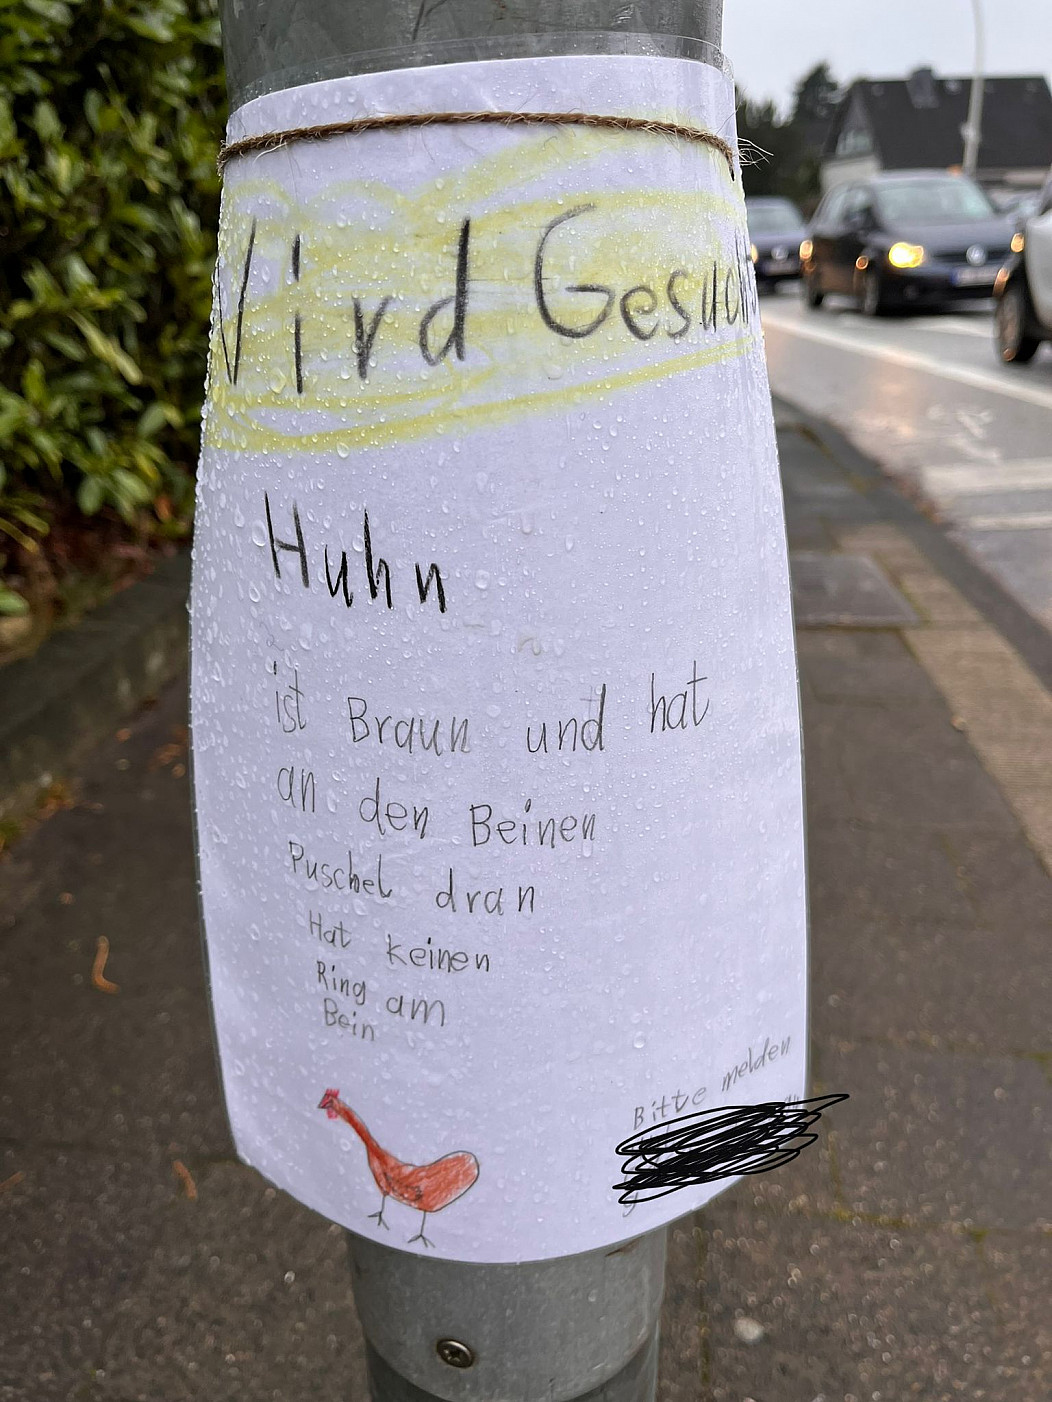 Wird Gesuch
Huhn
ist Braun und hat
an den Beinen
Puschel dran
Hat keinen
Ring am
Bein
Bitte melden